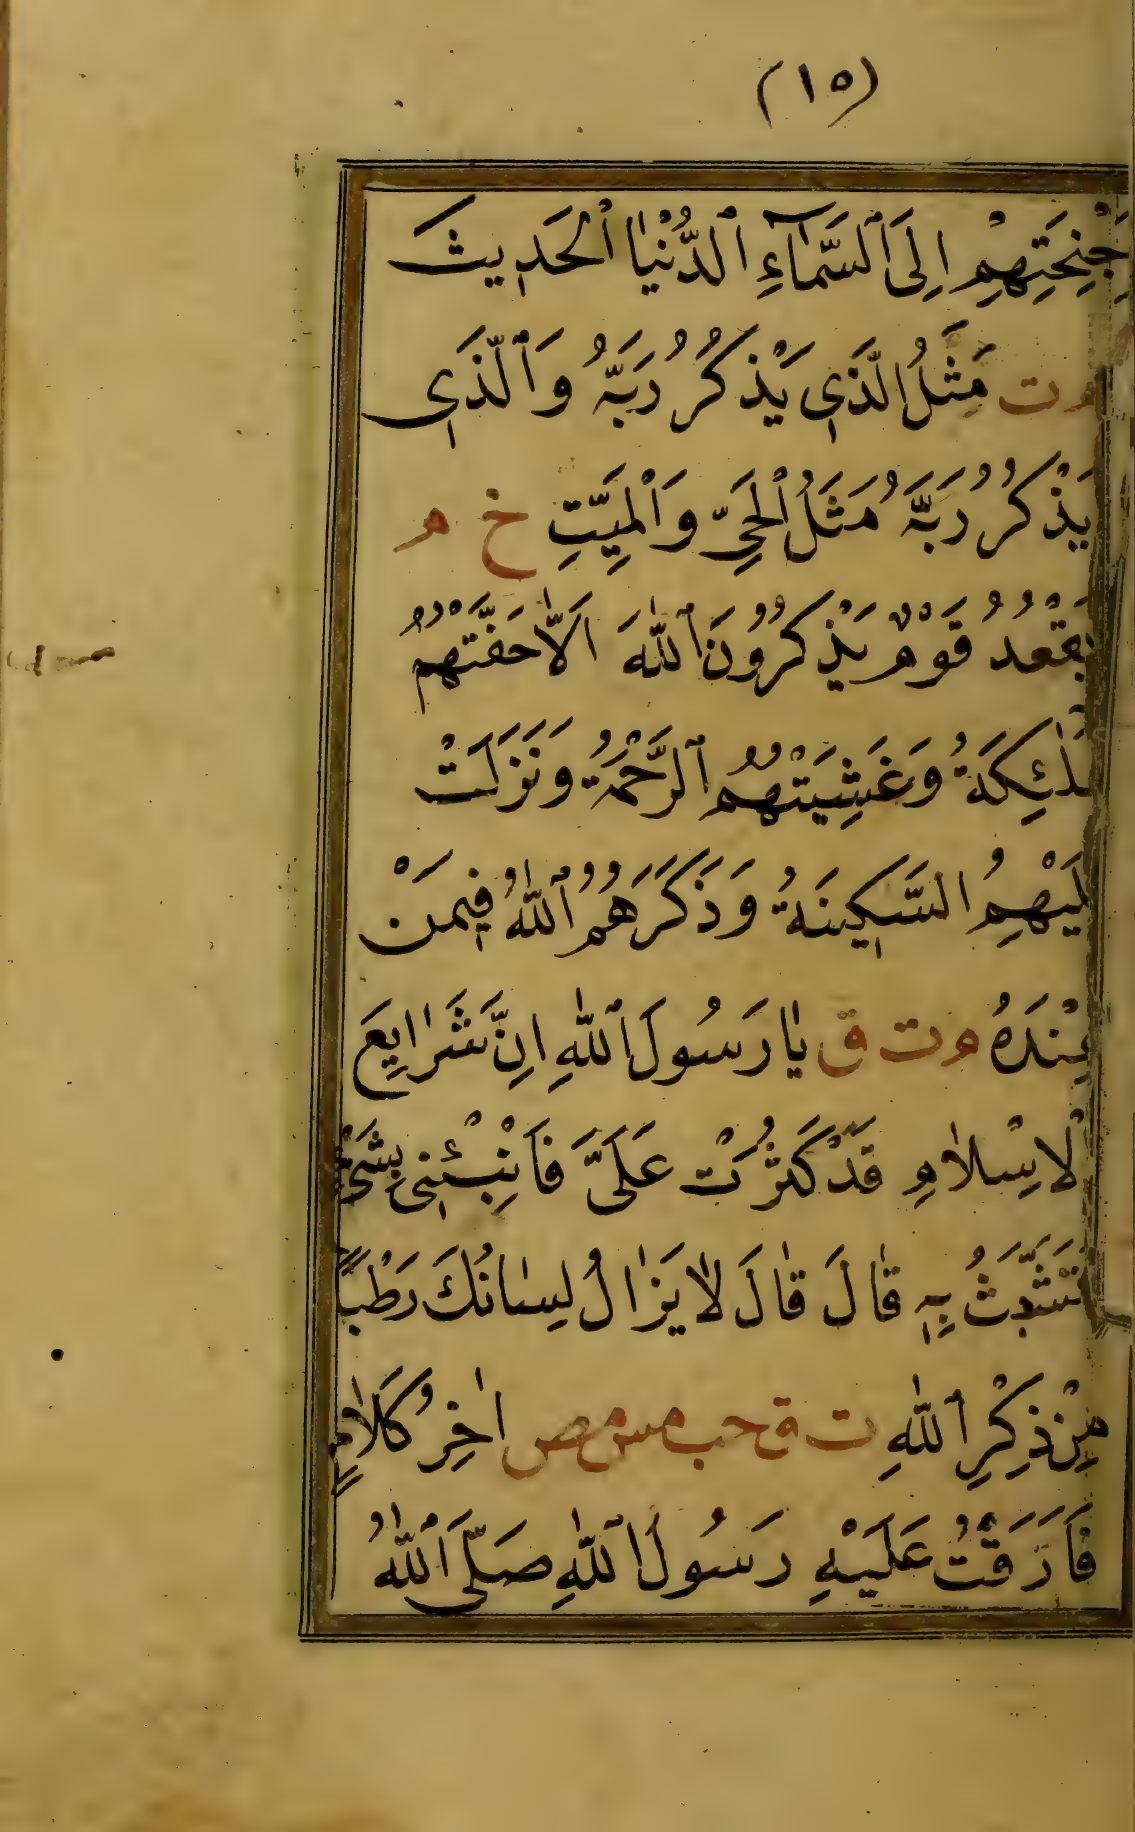 (١٥)
جْنِحَتِهِمْ اِلَى ٱلسَّمَآءِ ٱلدُّنْيَا ٱلْحَدِيثَ
م ت مَثَلُ الَّذِى يَذْكُرُ رَبَّهُ وَٱلَّذِى
يَذْكُرُ رَبَّهُ مَثَلُ ٱلْحَىِّ وَٱلْمَيِّتِ خ م
يَقْعُدُ قَوْمٌ يَذْكُرُونَ ٱللّٰهَ اَلَّا حَفَّتْهُمُ
لٰئِكَةُ وَغَشِيَتْهُمُ ٱلرَّحْمَةُ وَنَزَلَتْ
لَيْهِمُ السَّكِينَةُ وَذَكَرَهُمُ ٱللّٰهُ فِيمَنْ
عِنْدَهُ م ت ق يَا رَسُولَ ٱللّٰهِ اِنَّ شَرَايِعَ
لْاِسْلَامِ قَدْ كَثُرَتْ عَلَىَّ فَاَنْبِئْنِى بِشَىْءٍ
اَتَشَبَّثُ بِهِ قَالَ قَالَ لَا يَزَالُ لِسَانُكَ رَطْبًا
مِنْ ذِكْرِ ٱللّٰهِ ت ق حب مس مص اٰخِرُ كَلَامٍ
فَارَقْتُ عَلَيْهِ رَسُولَ ٱللّٰهِ صَلَّى ٱللّٰهُ